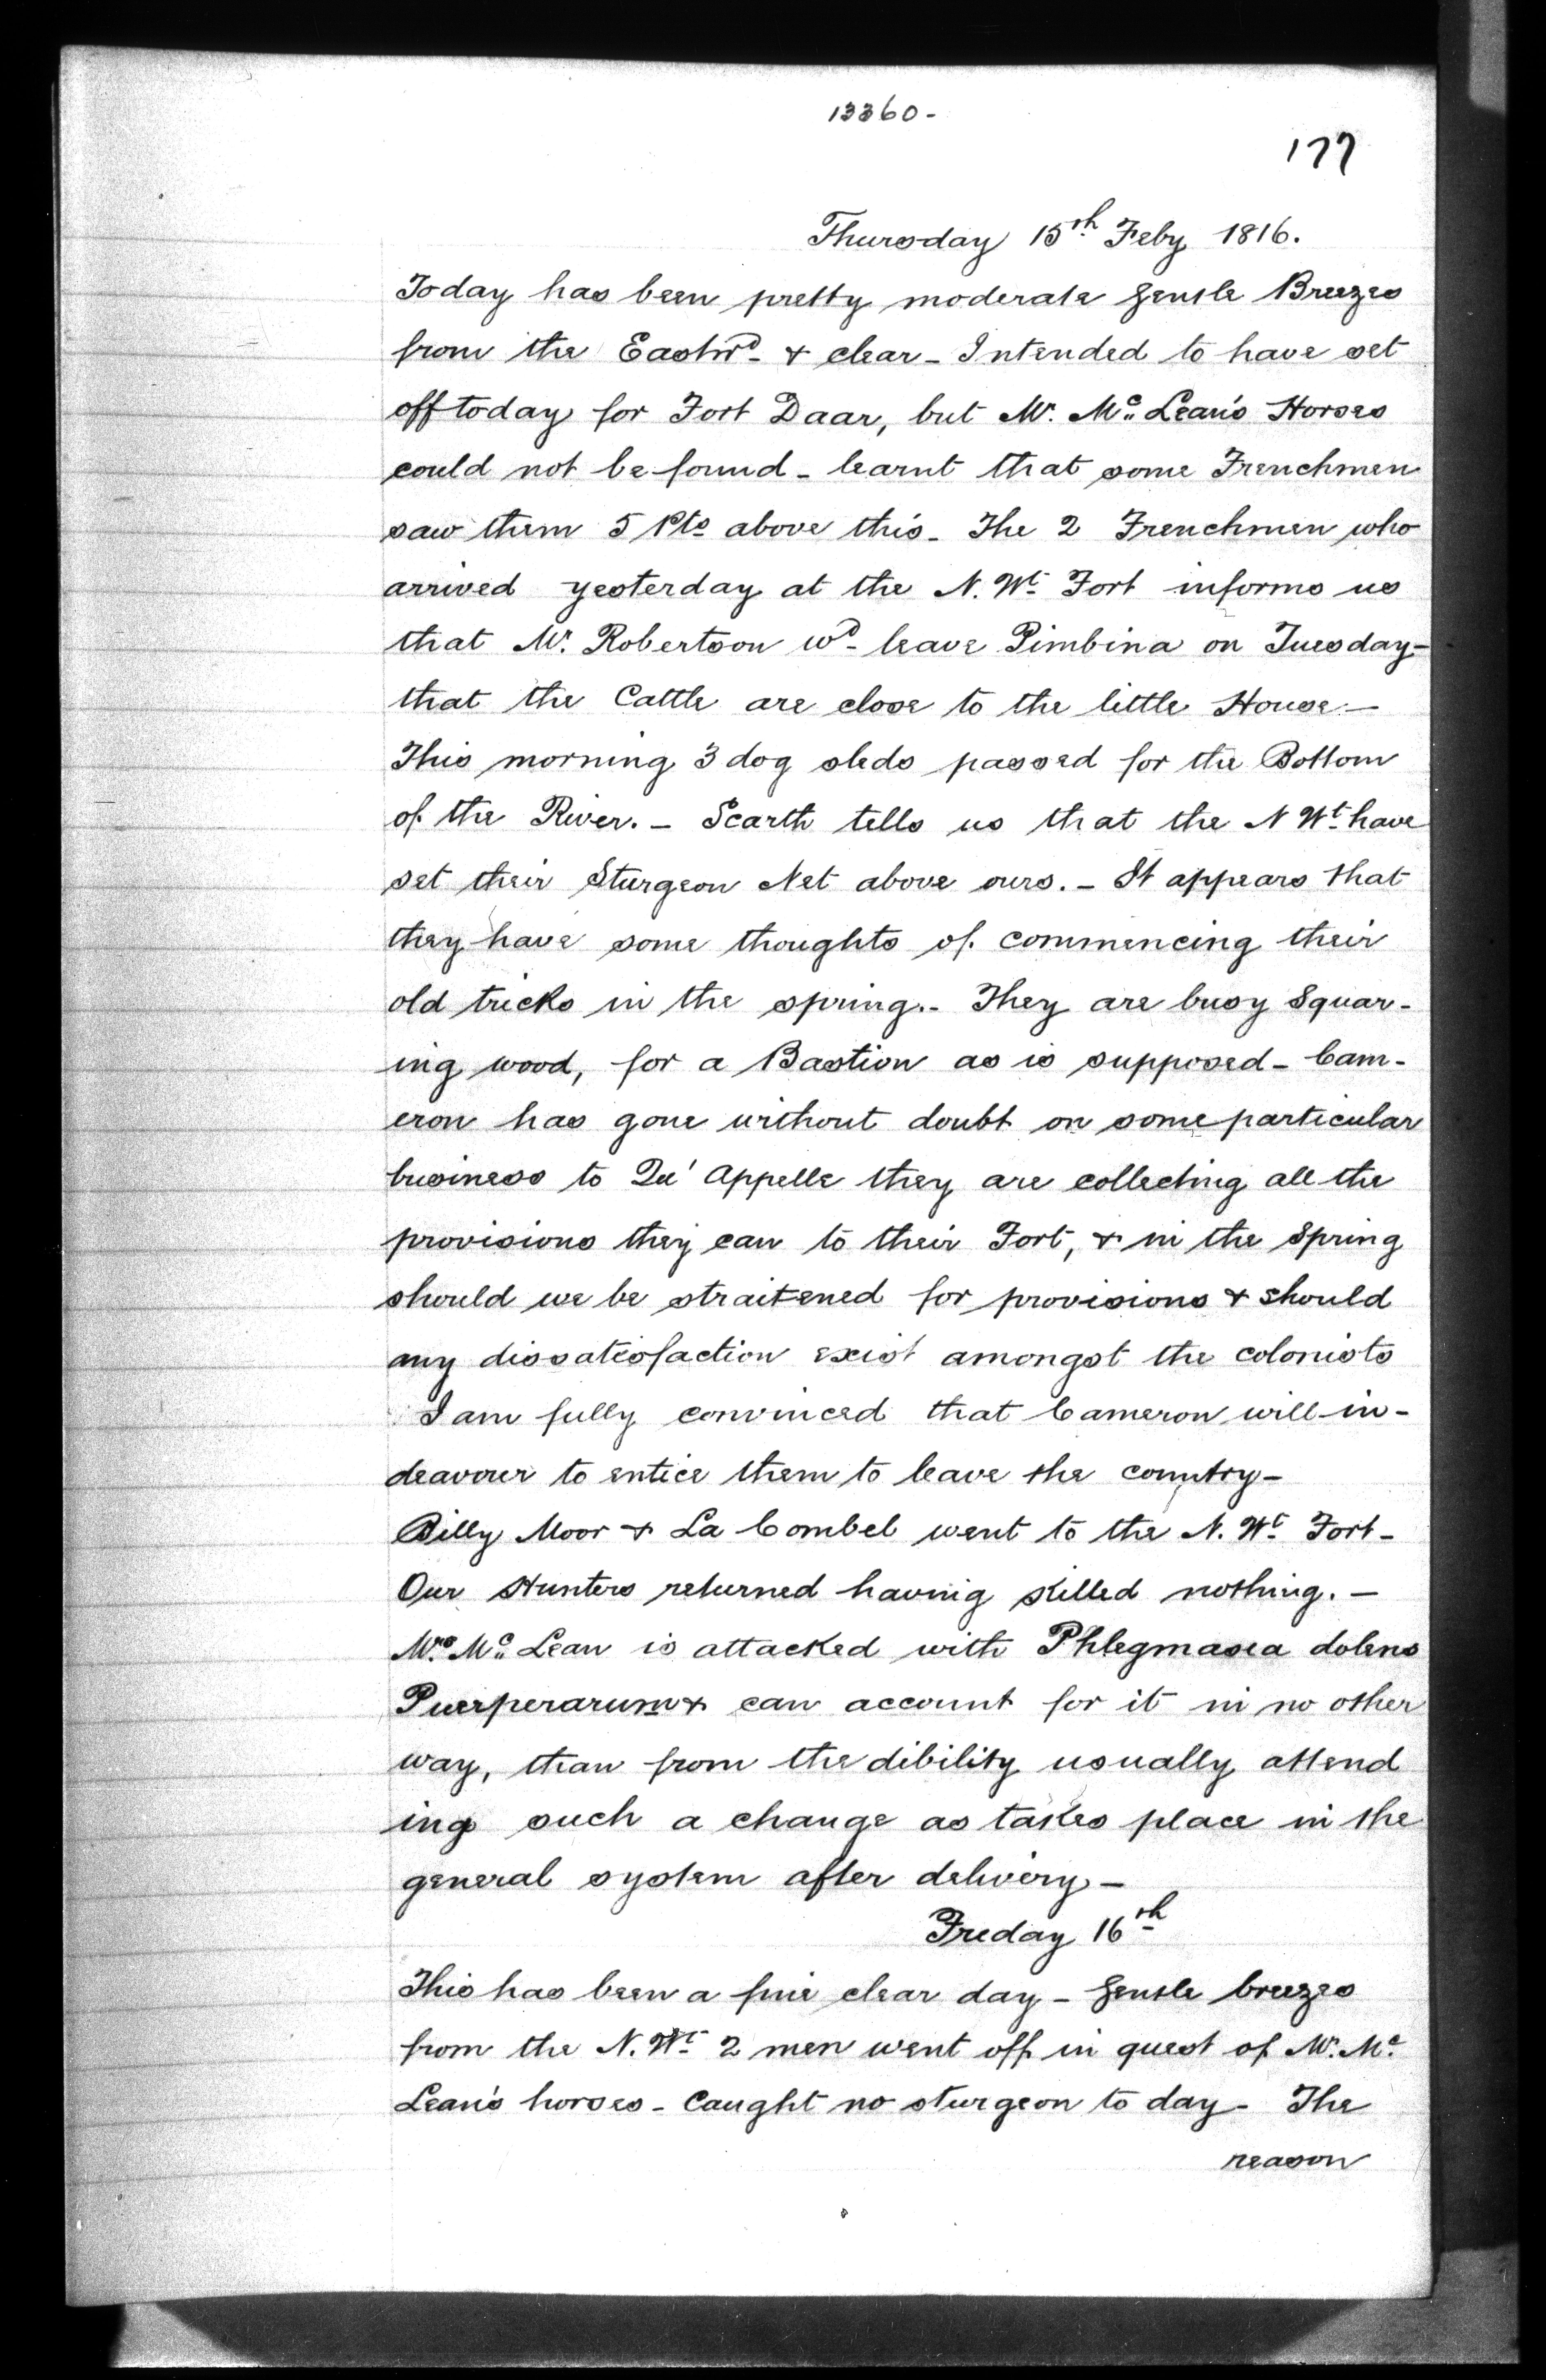 13360-
177
Thursday 15th Feby 1816.
Today has been pretty moderate gentle Breezes
from the Eastwd - & clear - Intended to have set
off today for Fort Daar, but Mr. Mc Lean's Horses
could not be found - learnt that some Frenchmen
saw them 5 Pts above this - The 2 Frenchmen who
arrived yesterday at the N. Wt Fort informs us
that Mr. Robertson wd - leave Pimbina on Tuesday -
that the Cattle are close to the little House. -
This morning 3 dog sleds passed for the Bottom
of the River. - Scarth tells us that the N Wt have
set their Sturgeon Net above ours. - It appears that
they have some thoughts of commencing their
old tricks in the spring. - They are busy Squar-
ing wood, for a Bastion as is supposed - Cam-
eron has gone without doubt on some particular
business to Qu' Appelle they are collecting all the
provisions they can to their Fort, & in the Spring
should we be straitened for provisions & should
any dissatisfaction exist amongst the colonists
I am fully convinced that Cameron will in-
deavour to entice them to leave the country -
Billy Moor & La Combel went to the N. Wt Fort -
Our Hunters returned having killed nothing. -
Mrs Mc Lean is attacked with Phlegmasia dolens
Puerperarum & can account for it in no other
way, than from the dibility usually attend
ing such a change as takes place in the
general system after delivery -
Friday 16th
This has been a fine clear day - gentle breezes
from the N. Wt 2 men went off in quest of Mr. Mc
Lean's horses - Caught no sturgeon to day - The
reason